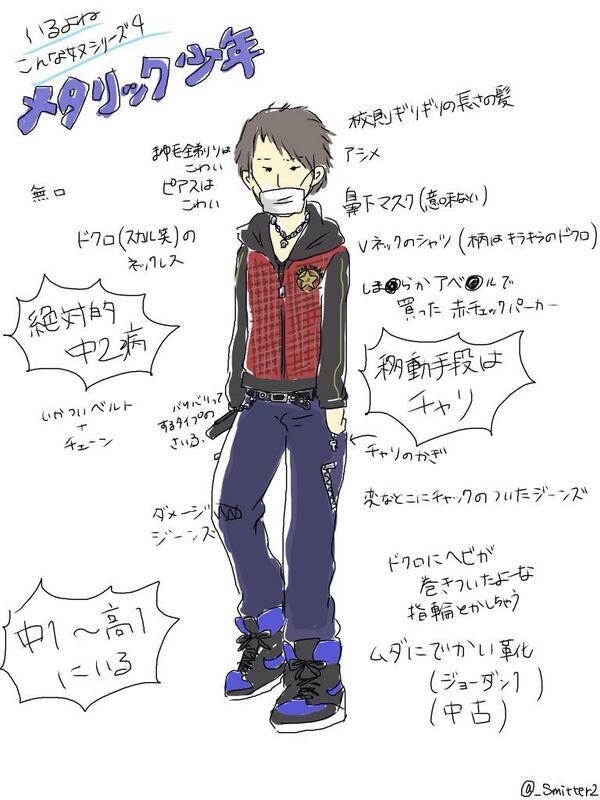 いるよね
こんな奴シリーズ4
メタリック少年
校則ギリギリの長さの髪
まゆ毛全剃りは
こわい
アシメ
ピアスは
こわい
無口
鼻下マスク(意味ない)
ドクロ(スカル笑)の
ネックレス
Vネックのシャツ(柄はキラキラのドクロ)
しま●らかアベ●ルで
買った赤チェックパーカー
絶対的
中2病
移動手段は
チャリ
いかついベルト
+
チェーン
バリバリって
するタイプの
さいふ
チャリのかぎ
変なとこにチャックのついたジーンズ
ダメージ
ジーンズ
ドクロにヘビが
巻きついたよーな
指輪とかしちゃう
中1～高1
にいる
ムダにでかい靴
(ジョーダン1)
(中古)
@_Smitter2